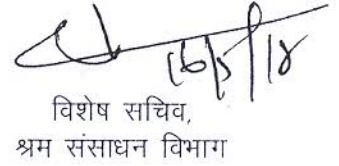 16/5/18
विशेष सचिव,
श्रम संसाधन विभाग